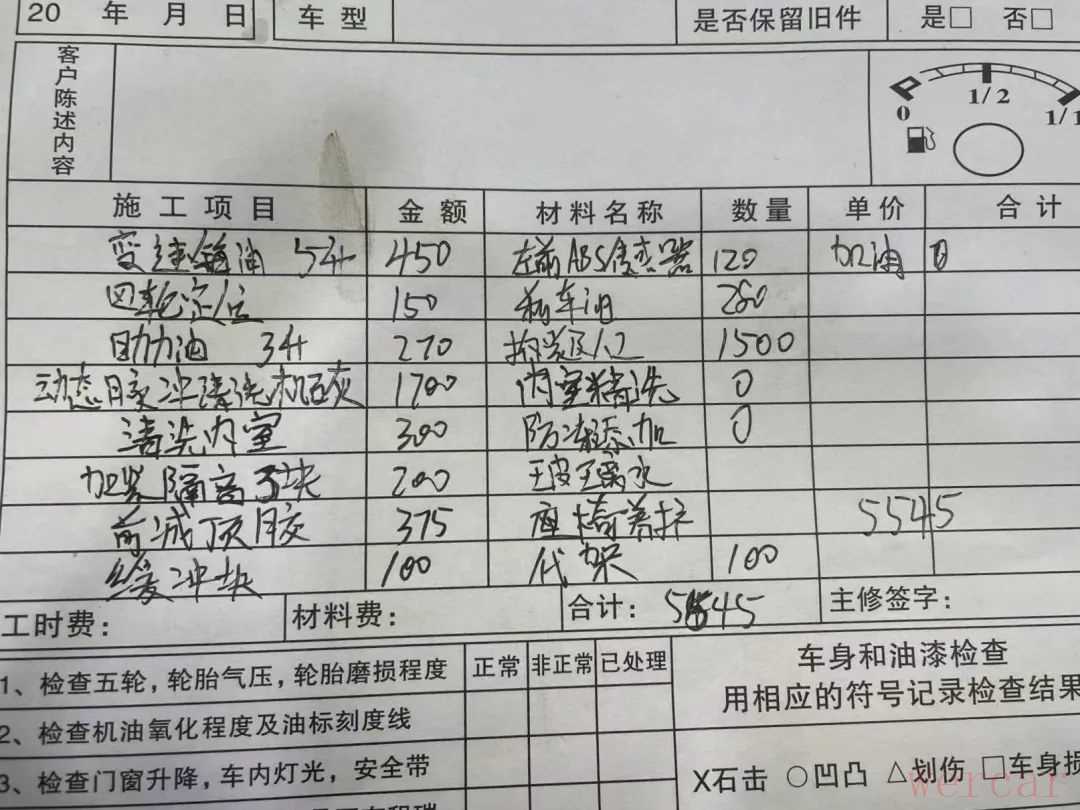 20 年 月 日 车型 是否保留旧件 是□ 否□
客户陈述内容
0 1/2 1/1
施工项目 金额 材料名称 数量 单价 合计
变速箱油 5升 450 左前ABS传感器 120 加油
四轮定位 150 刹车油 280
助力油 3升 270 1500
动态脉冲清洗机 1700 内室精洗 0
清洗内室 300 防冻添加 0
加装隔音块 200 玻璃水
前减顶胶 375 座椅养护 5545
缓冲块 100 代架 100
工时费: 材料费: 合计: 5545 主修签字:
1、检查五轮,轮胎气压,轮胎磨损程度 正常 非正常 已处理 车身和油漆检查
用相应的符号记录检查结果
2、检查机油氧化程度及油标刻度线
3、检查门窗升降,车内灯光,安全带 X石击 ○凹凸 △划伤 □车身损
wercar